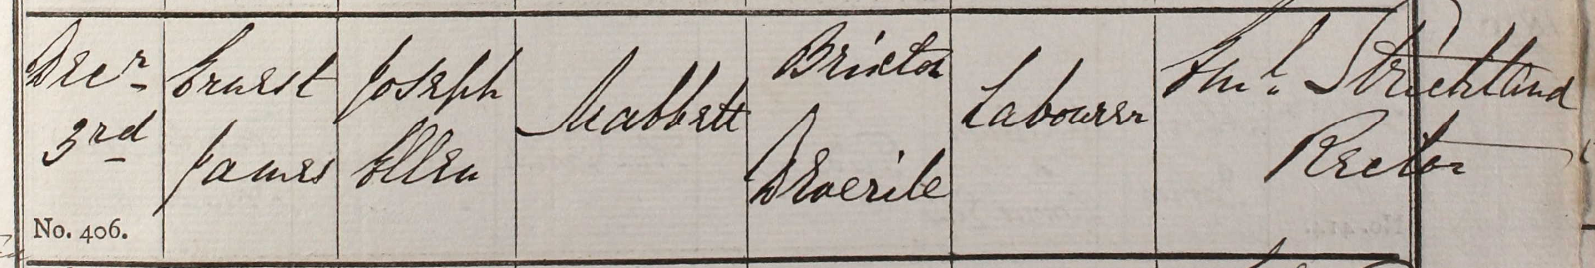 Decr
3rd
No. 406.
Ernest
James
Joseph
Ellen
Mabbett
Brixton
Deverile
Labourer
Strickland
Rector